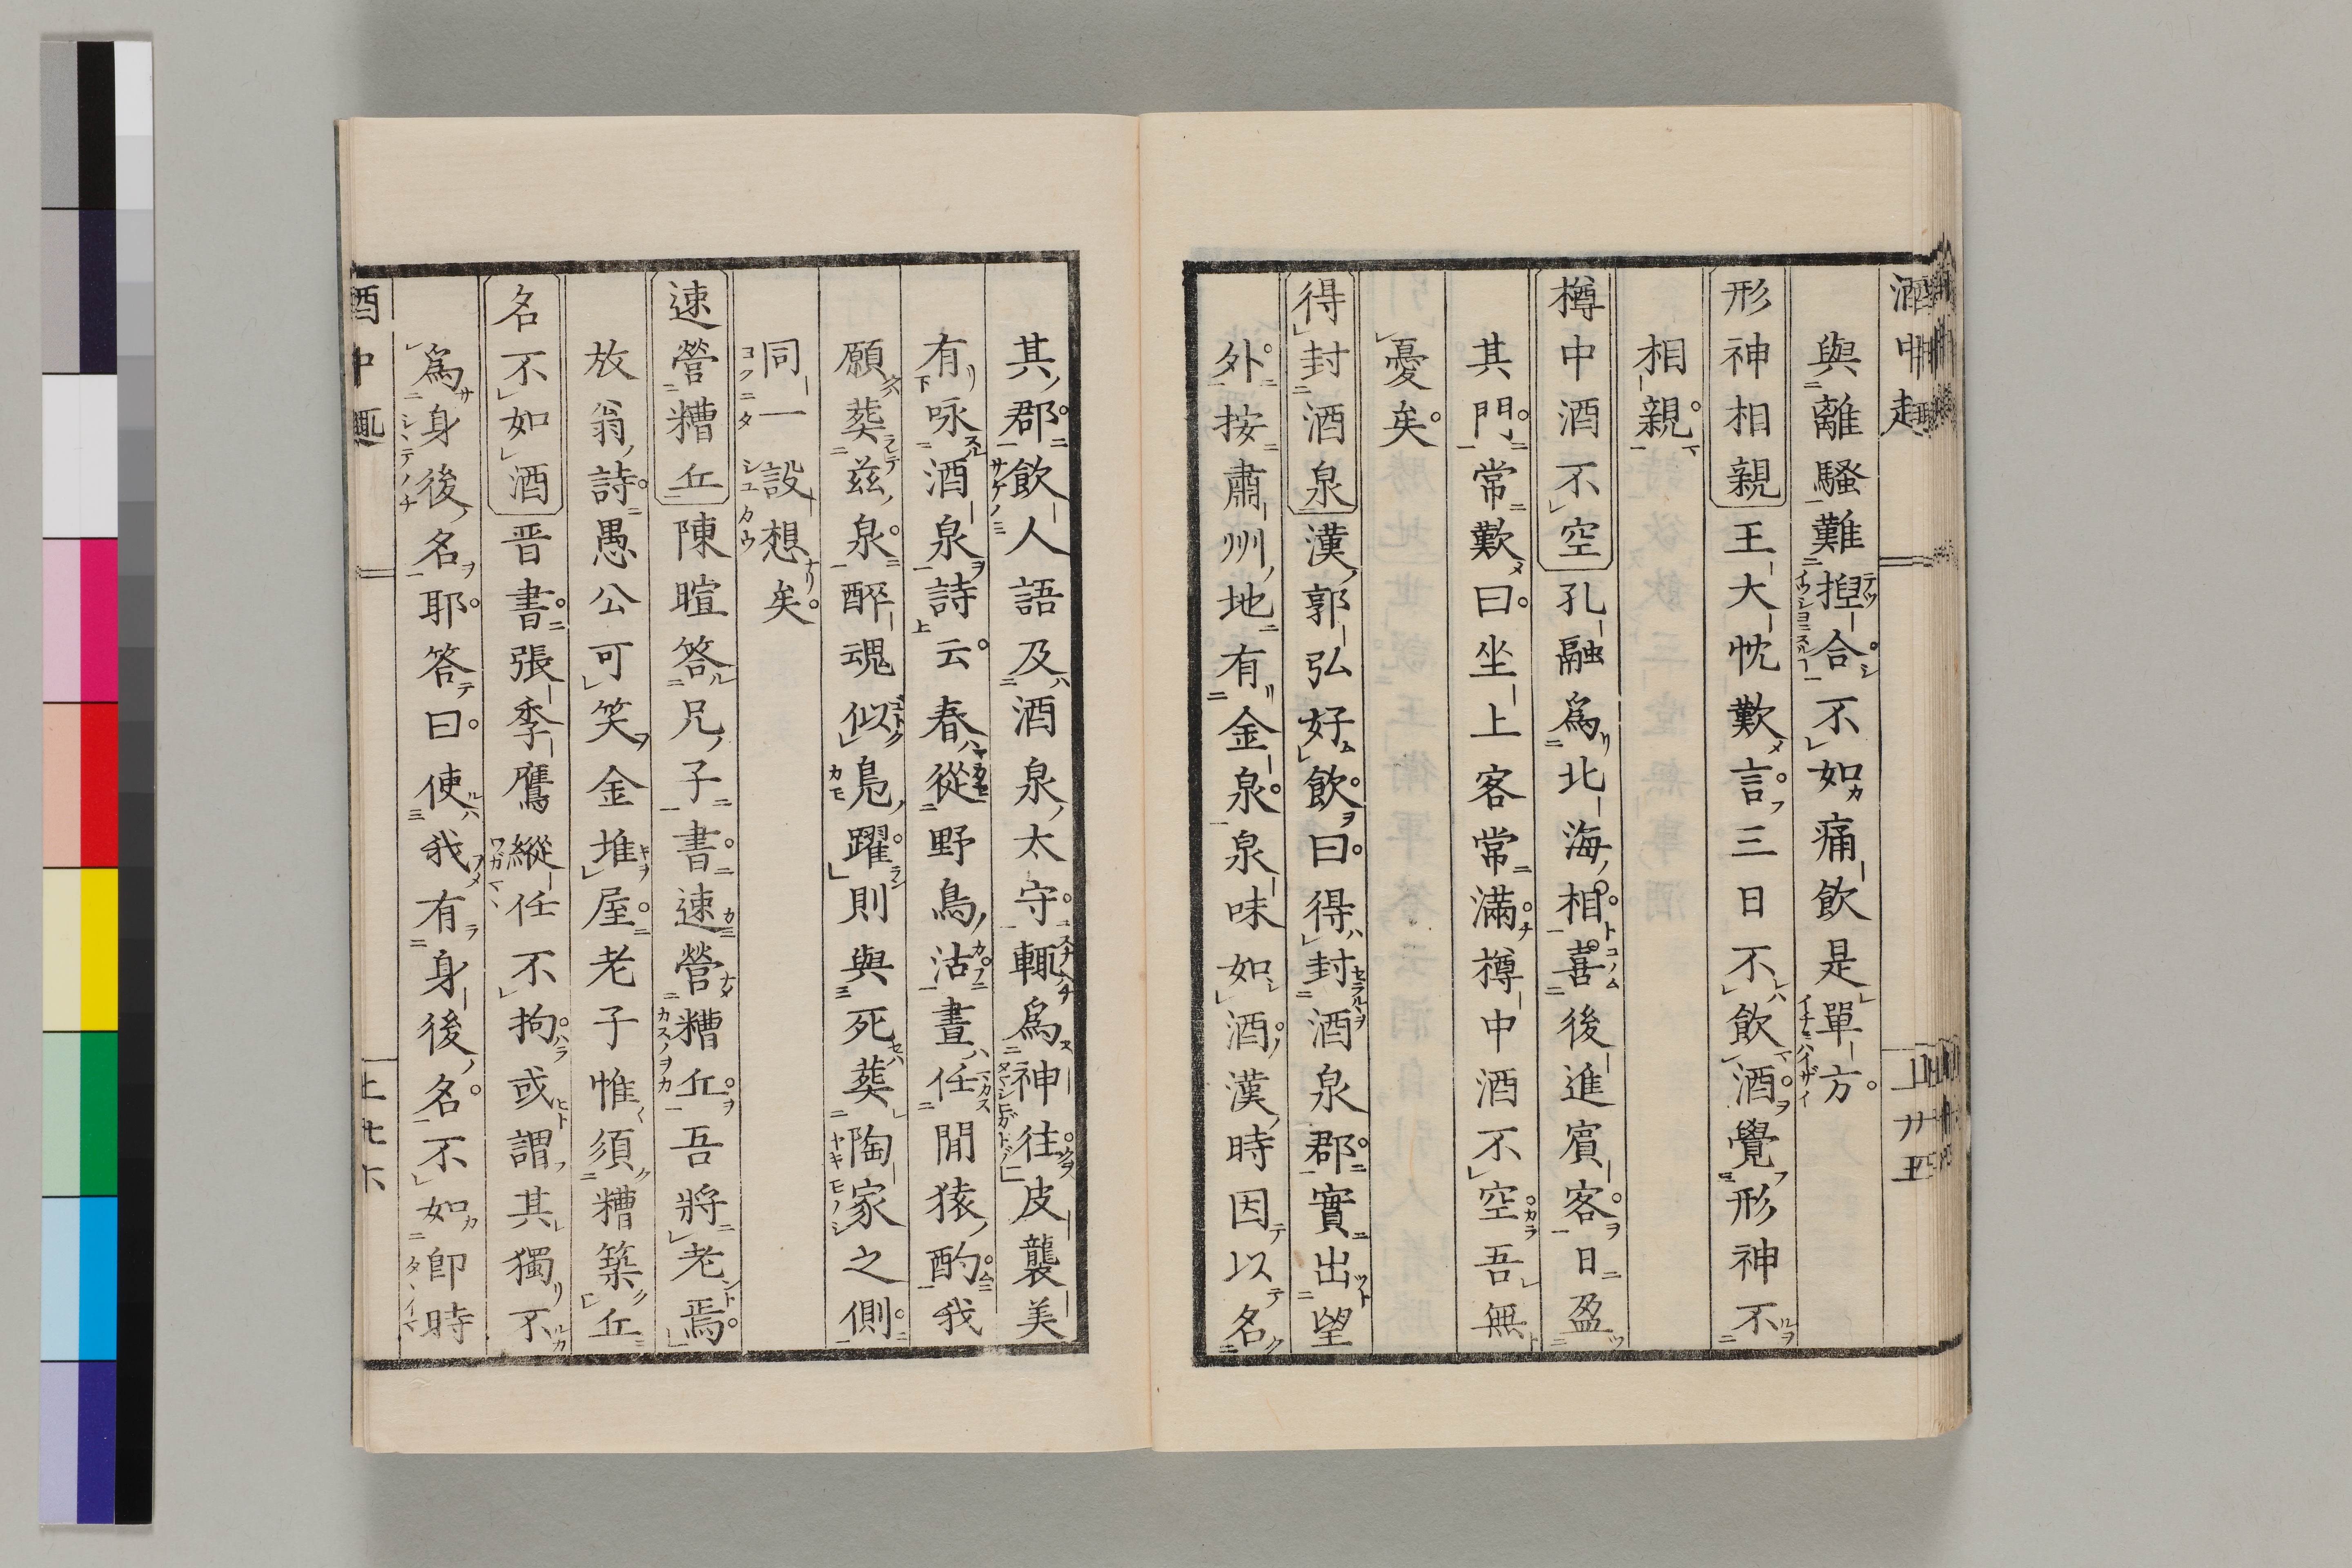 與離騷難揑合不如痛飲是單方
形神相親王大忱歎言三日不飲酒覺形神不
相親
樽中酒不空孔融爲北海相喜後進賓客日盈
其門常歎曰坐上客常滿樽中酒不空吾無
憂矣
得封酒泉漢郭弘好飲曰得封酒泉郡實出望
外按肅州地有金泉泉味如酒漢時因以名
其郡飲人語及酒泉太守輒爲神往皮襲美
有咏酒泉詩云春從野鳥沽晝任閒猿酌我
願葬茲泉醉魂似鳧躍則與死葬陶家之側
同一設想矣
速營糟丘陳暄答兄子書速營糟丘吾將老焉
放翁詩愚公可笑金堆屋老子惟須糟築丘
名不如酒晉書張季鷹縱任不拘或謂其獨不
爲身後名耶答曰使我有身後名不如卽時